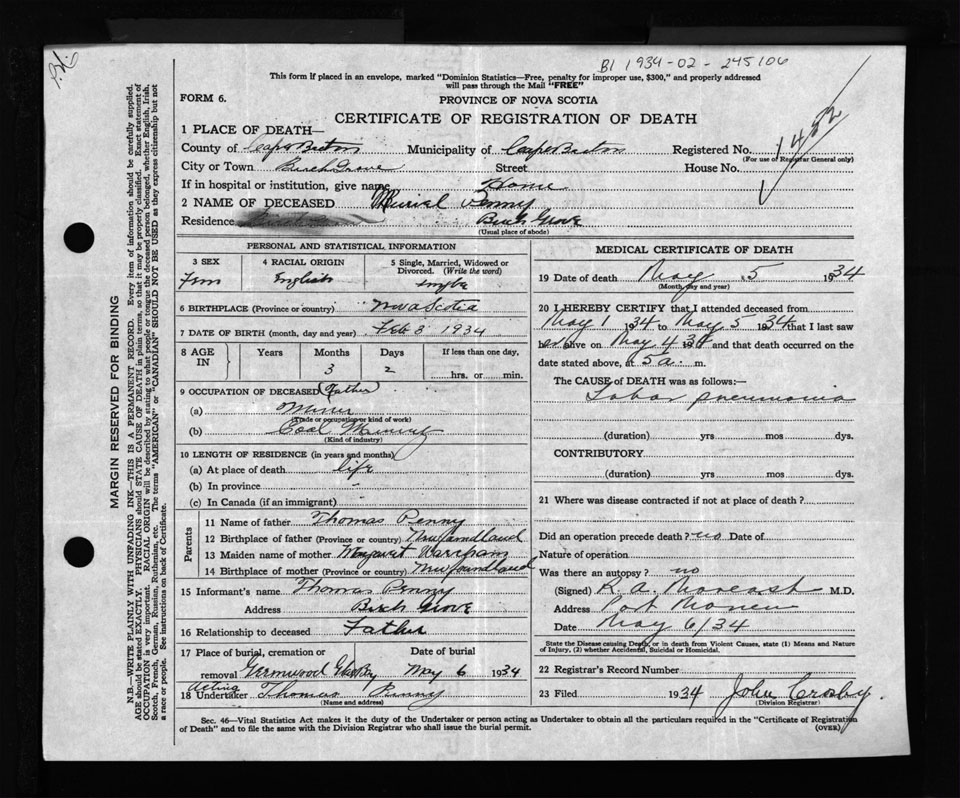 B1 1934-02-245106
This form if placed in an envelope, marked "Dominion Statistics—Free, penalty for improper use, $300," and properly addressed
will pass through the Mail "FREE"
FORM 6.
PROVINCE OF NOVA SCOTIA
CERTIFICATE OF REGISTRATION OF DEATH
1 PLACE OF DEATH—
County of Cape Breton Municipality of Cape Breton Registered No.
(For use of Registrar General only)
City or Town Birch Grove Street House No.
If in hospital or institution, give name Home
2 NAME OF DECEASED Murial Penny
Residence Birch Grove
(Usual place of abode)
MARGIN RESERVED FOR BINDING
N.B.—WRITE PLAINLY WITH UNFADING INK—THIS IS A PERMANENT RECORD. Every item of information should be carefully supplied.
AGE should be stated EXACTLY. PHYSICIANS should STATE CAUSE OF DEATH in plain terms, so that it may be properly classified. Exact statement of
OCCUPATION is very important. RACIAL ORIGIN will be described by stating to what people or tongue the deceased person belonged, whether English, Irish,
Scotch, French, German, Russian, Ruthenian, etc. The terms "AMERICAN" or "CANADIAN" SHOULD NOT BE USED as they express citizenship but not
a race or people. See instructions on back of Certificate.
PERSONAL AND STATISTICAL INFORMATION
3 SEX 4 RACIAL ORIGIN 5 Single, Married, Widowed or
Divorced. (Write the word)
Fem English single
6 BIRTHPLACE (Province or country) Nova Scotia
7 DATE OF BIRTH (month, day and year) Feb 3 1934
8 AGE IN Years Months Days If less than one day.
3 2 hrs. or min.
9 OCCUPATION OF DECEASED Father
(a) Miner
(Trade or occupation or kind of work)
(b) Coal Mining
(Kind of industry)
10 LENGTH OF RESIDENCE (in years and months)
(a) At place of death life
(b) In province
(c) In Canada (if an immigrant)
Parents
11 Name of father Thomas Penny
12 Birthplace of father (Province or country) Newfoundland
13 Maiden name of mother Margaret Wareham
14 Birthplace of mother (Province or country) Newfoundland
15 Informant's name Thomas Penny
Address Birch Grove
16 Relationship to deceased Father
17 Place of burial, cremation or Date of burial
removal Glace Bay May 6 1934
Acting
18 Undertaker Thomas Penny
(Name and address)
MEDICAL CERTIFICATE OF DEATH
19 Date of death May 5 1934
(Month, day and year)
20 I HEREBY CERTIFY that I attended deceased from
May 1 1934 to May 5 1934 that I last saw
her alive on May 4 1934 and that death occurred on the
date stated above, at 5 a. m.
The CAUSE OF DEATH was as follows:—
Lobar pneumonia
(duration) yrs mos dys.
CONTRIBUTORY
(duration) yrs mos dys.
21 Where was disease contracted if not at place of death?
Did an operation precede death? no Date of
Nature of operation
Was there an autopsy? no
(Signed) M.D.
Address Port Morien
Date May 6/34
State the Disease causing Death, or in death from Violent Causes, state (1) Means and Nature
of Injury, (2) whether Accidental, Suicidal or Homicidal.
22 Registrar's Record Number
23 Filed 1934 John Crosby
(Division Registrar)
Sec. 46—Vital Statistics Act makes it the duty of the Undertaker or person acting as Undertaker to obtain all the particulars required in the "Certificate of Registration
of Death" and to file the same with the Division Registrar who shall issue the burial permit. (OVER)